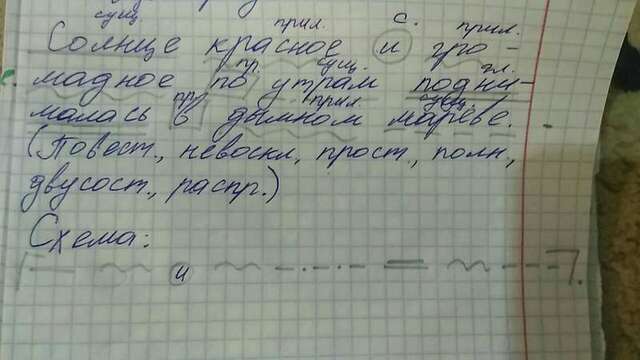 сущ. прил. с. прил.
Солнце красное и гро-
пр. сущ. гл.
мадное по утрам подни-
пр. прил. сущ.
малась в дымном мареве.
(Повест., невоскл, прост., полн,
двусост., распр.)
Схема:
и